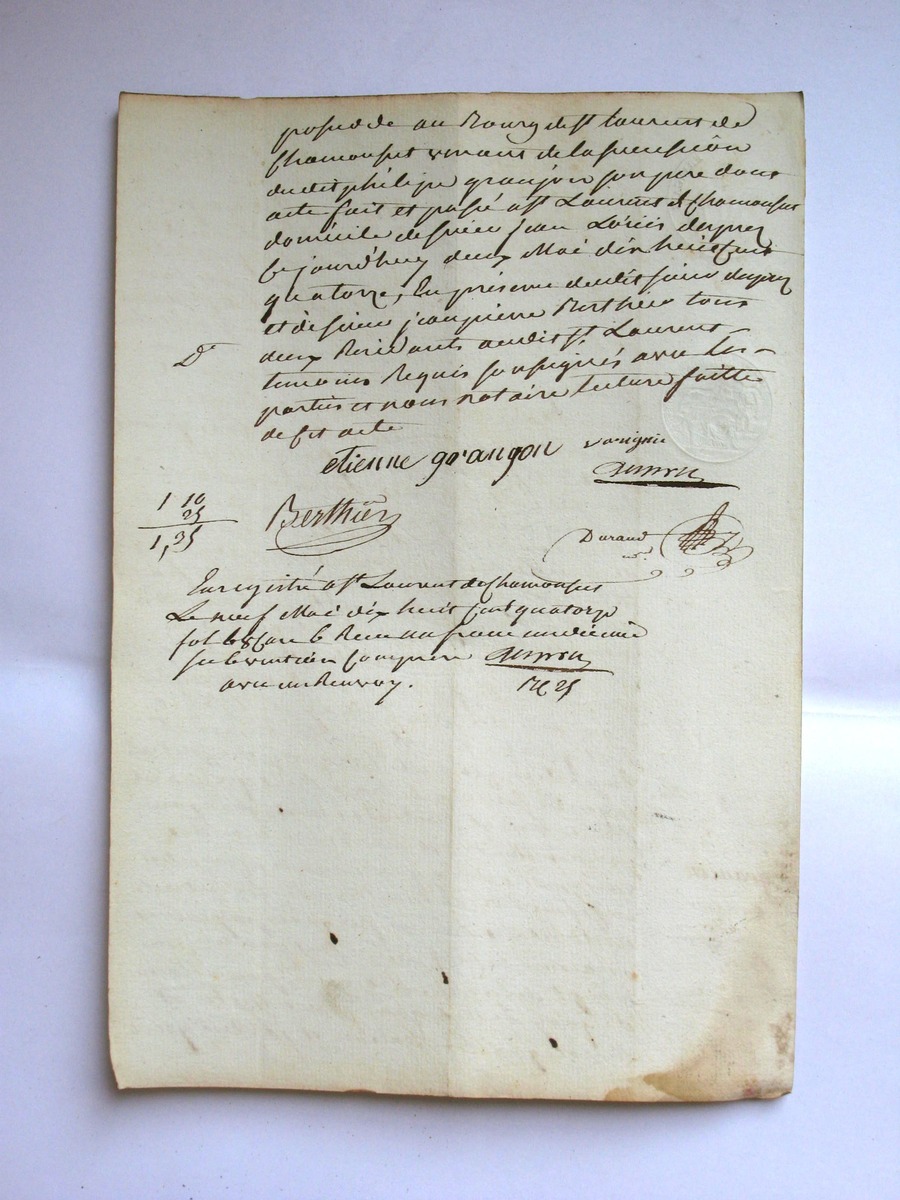 possede au Bourg de st Laurent de
Chamousset venant de la succession
dudit philipe granjon son pere dont
acte fait et passé a st Laurent de Chamousset
domicile de sieur jean Loüis
Ce jourd'huy deux Mai dix huit Cent
quatorze, En présence dudit sieur
et de sieur jean pierre Berthier tous
De
deux Residants audit st Laurent
temoins Requis soussignés avec les
parties et nous notaire lecture faitte
de cet acte
etienne grangon
1 10
25
1,35
Berthier
Durand
Enregistré a st Laurent de Chamousset
Le neuf Mai dix huit Cent quatorze
fol Case 6 Recu un franc un décime
subvention Comprise
avec un Renvoy.